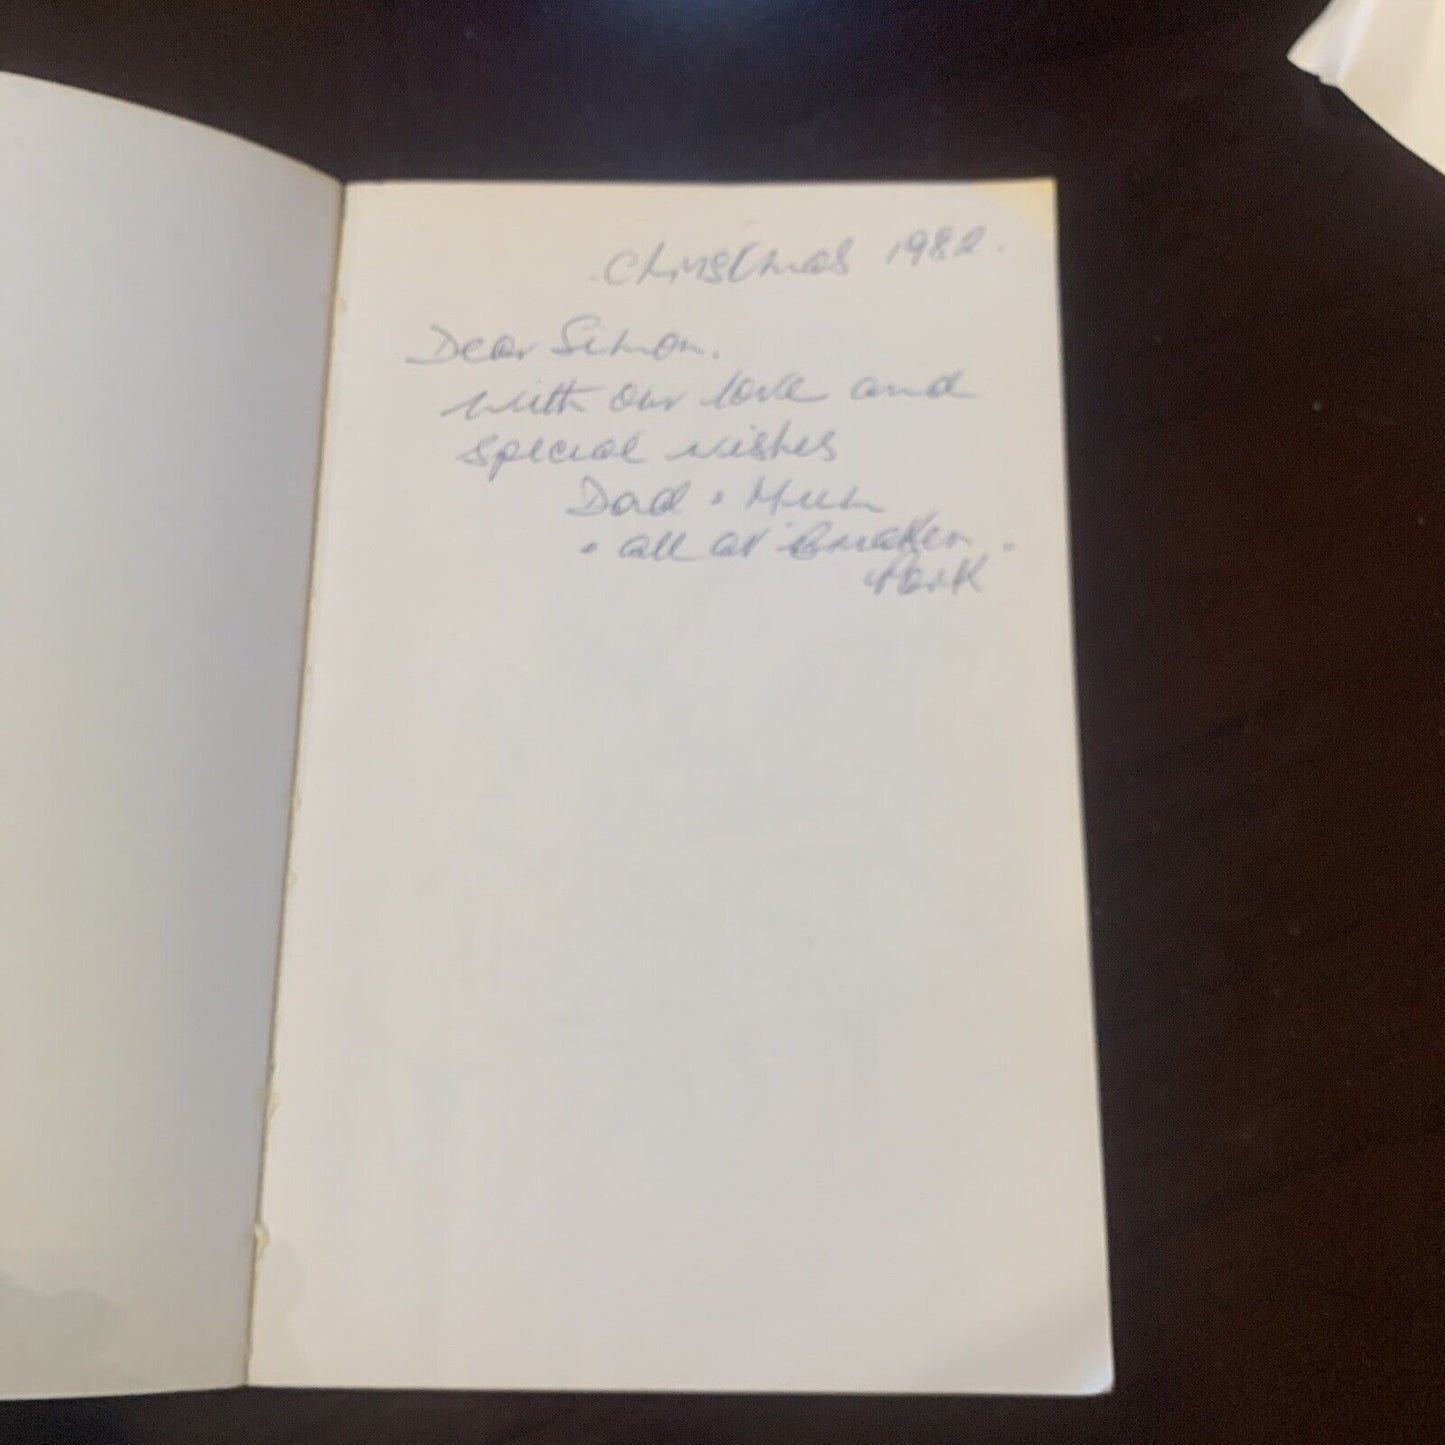 Christmas 1982.
Dear Simon.
with our love and
special wishes
Dad + Mum
+ all at
Park